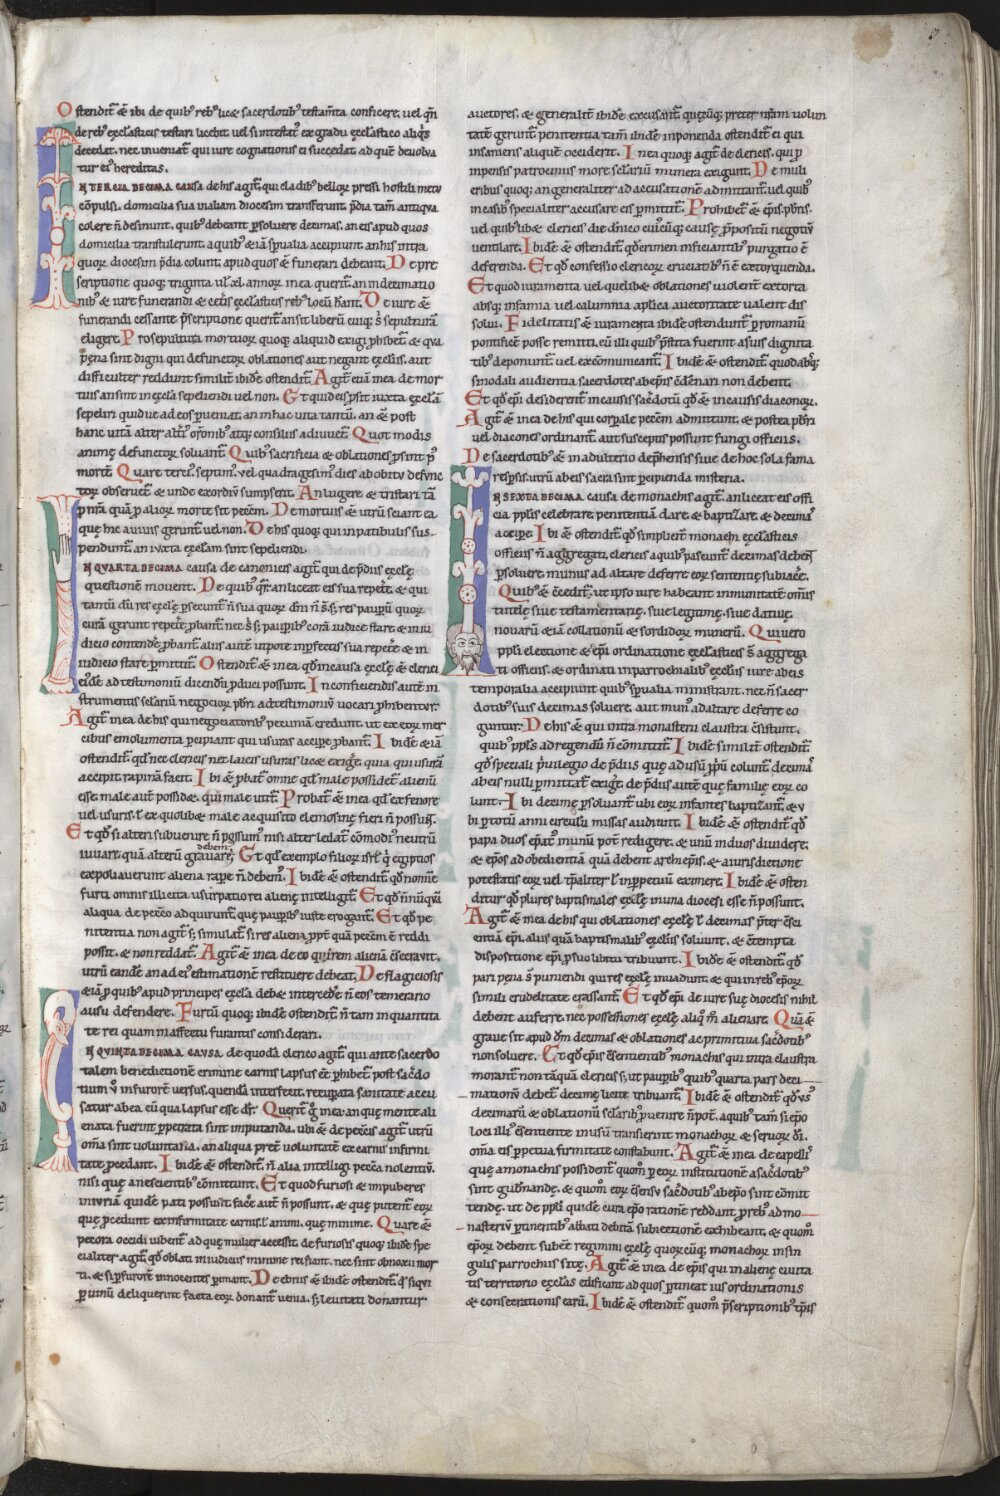 Ostendit̄ & ibi de quib' reb' licet sacerdotib' testam̄ta conficere. uel q̄n
de reb' ęcclesiasticis testari licebit. uel si intestat' ex gradu ęcclesiastico aliq̣s
decedat. nec inueniat̄ qui iure cognationis ei succedat. ad quē deuolua
tur ei' hereditas.
IN TERCIA DECIMA causa de his agit̄. qui cladib' belloꝝ pressi. hostili metv
cōpulsi. domicilia sua in aliam diocesim transferunt. p̄dia tam̄ antiqva
colere n̄ desinunt. quib' debeant ꝑsoluere decimas. an eis apud quos
domicilia transtulerunt. a quib' & iā sp̄ualia accipiunt. an his intra
quoꝝ diocesim p̄dia colunt. apud quos & funerari debeant. De pre
scriptione quoq; triginta ul' .xl. annoꝝ. in ea querit̄. an in decimatio
nib' & iure funerandi & cet̄is ęcclesiasticis reb' locū habeant. De iure &
funerandi cessante p̄scriptione querit̄ an sit liberū cuiq; s' sepulturā
eligere. Pro sepultura mortuoꝝ quoq; aliquid exigi ꝓhibet̄. & qua
pęna sint digni qui defunctoꝝ oblationes aut negant ęcclesiis. aut
difficulter reddunt similit̄ ibidē ostendit̄. Agit̄ etiā in ea de mor
tuis an sint in ęcclesia sepeliendi uel non. Et quid eis ꝓsit iuxta ęcclesiā
sepeliri. quidue ad eos ꝑueniat. an in hac uita tantū. an & post
hanc uitā alter alt̄i' orōnib' atq; consiliis adiuuet̄. Quot modis
animę defunctoꝝ soluant̄. Quib' sacrificia & oblationes ꝓsint p'
mortē. Quare terci'. septim'. vel quadragesim' dies ab obitv defvnc
toꝝ obseruet̄. & unde exordiv̄ sumpserit. An lugere & tristari tā
ꝓ nr̄a quā ꝓ alioꝝ morte sit peccatū. De mortuis & utrū sciant ea
quę hic a uiuis gerunt̄ uel non. De his quoq; qui in patibulis sus
pendunt̄. an iuxta ęcclesiam sint sepeliendi.
IN QVARTA DECIMA causa de canonicis agit̄. qui de p̄diis ęcclesię
questionē mouent. De quib' querit̄ an liceat eis sua repetere. & qui
tantū dn̄i res ęcclesię ꝑsecunt̄ n̄ sua quoꝝ dn̄i n̄ s̄. s; res pauperū quoꝝ
curā gerunt repetere ꝓbant̄. nec s' s; pauꝑib' corā iudice stare. & in iu
dicio contendere ꝓbant̄. alius aut̄ utpote inperfectis sua repetere & in
iudicio stare ꝑmittit̄. Ostendit̄ & in ea. qd̄ in causa ęcclesię & clerici
eidē ad testimoniū dicendū ꝓduci possunt. In conficiendis aut̄ in
strumentis seclariū negocioꝝ. pbr̄i ad testimoniv̄ vocari ꝓhibentvr.
Agit̄ in ea de his qui negociatorib' pecuniā credunt. ut ex eoꝝ mer
cibus emolumenta ꝑcipiant qui usuras accipere ꝓbant̄. Ibidē & iā
ostendit̄. qd̄ nec clericis nec laicis usuras licet exigere. quia qui usurā
accipit. rapinā facit. Ibi & ꝓbat̄ omne qd̄ male possidet̄. alienū
esse. male aut̄ possidet. qui male utit̄. Probat̄ & in ea qd̄ ex fenore
vel usuris. l' ex quolibet male acquisito elemosinę fieri n̄ possunt.
Et qd̄ si alteri subuenire n̄ possum' nisi alter ledat̄. cōmodi' neutrū
iuuare. quā alterū grauare debem'. Et qd̄ exemplo filioꝝ isrl' qui egyptios
expoliauerunt aliena rapere n̄ debem'. Ibidē & ostendit̄ qd̄ nomīe
furti omnis illicita usurpatio rei alienę intelligit̄. Et qd̄ n̄nūquā
aliqua de peccato adquirunt̄. quę pauꝑib' iuste erogant̄. Et qd̄ pe
nitentia non agit̄. s; simulat̄. si res aliena ꝓpt̄ quā peccatum ē reddi
possit. & non reddat̄. Agit̄ & in ea de eo qui rem alienā c̄secravit.
utrū eandē an ad ei' estimationē restituere debeat. De flagiciosis
& iā ꝓ quib' apud principes ęcclesia debet intercedere. n̄ eos temerario
ausu defendere. Furtū quoq; ibidē ostendit̄. n̄ tam in quantita
te rei quam in affectu furantis considerari.
IN QVINTA DECIMA CAVSA de quodā clerico agit̄. qui ante sacerdo
talem benedictionē crimine carnis lapsus ēē ꝓhibet̄. post sac̄do
tium v̄ in furorē versus. quendā interfecit. recuꝑata sanitate accu
satur ab ea. cū qua lapsus esse d̄r. Querit̄ g' in ea. an quę mente ali
enata fuerint ꝑpetrata sint imputanda. ubi & de peccatis agit̄. utrū
om̄ia sint voluntaria. an aliqua preter voluntatē ex carnis infirmi
tate ꝓcedant. Ibidē & ostendit̄. n̄ alia intelligi peccata nolentiv̄.
nisi quę a nescientib' cōmittunt̄. Et quod furiosi & impuberes
iniuriā quidē pati possunt. facere aut̄ n̄ possunt. & quę putent̄ eoꝝ
quę ꝓcedunt ex infirmitate carnis. l' animi. quę minime. Quare &
pecora occidi iubent̄ ad quę mulier accessit. de furiosis quoq; ibidē spe
cialiter agit̄. qd̄ oblati in iudiciis minime resistant. nec sint obnoxii mor
ti. & si ꝑ furorē innocentes ꝑimant. De ebriis & ibidē ostendit̄. qd' si qui
ꝑ uinū deliquerint. facta eoꝝ donant̄ venia. s; leuitati donantur
auctores. & generalit̄ ibidē excusant̄. quęcūq; preter nr̄am volun
tatē gerunt̄. penitentia tam̄ ibidē inponenda ostendit̄ ei qui
insaniens aliquē occiderit. In ea quoq; agit̄ de clericis. qui ꝓ
inpensis patrociniis more seclariū munera exigunt. De muli
eribus quoq; an generaliter ad accusationē admittant̄. uel quib'
in casib' specialiter accusare eis ꝑmittit̄. Prohibet̄ & ep̄is. pbr̄is.
vel quib' libet clericis die dn̄ico cuiuscūq; causę ꝓpositū negotiv̄
ventilare. Ibidē & ostendit̄. qd̄ crimen inficiantib' purgatio ē
deferenda. Et qd̄ confessio clericoꝝ cruciatib' n̄ ē extorquenda.
Et quod iuramenta vel quelibet oblationes uiolent' extorta
absq; infamia vel calumnia aplica auctoritate valent dis
solui. Fidelitatis & iuramenta ibidē ostendunt̄ ꝑ romanū
pontificē posse remitti. cū illi quib' p̄stita fuerint a suis dignita
tib' deponunt̄ vel excōmunicant̄. Ibidē & ostendit̄ quod absq;
sinodali audientia sacerdotes ab ep̄is c̄dēnari non debent.
Et qd̄ ep̄i desiderent̄ in causis sac̄dotū qd̄ & in causis diaconoꝝ.
Agit̄ & in ea de his qui corꝑale peccatū admittunt. & postea pbr̄i
vel diacones ordinant̄. aut suscepti possunt fungi officiis.
De sacerdotib' & in adulterio depr̄hensis siue de hoc sola fama
respersis. utrū ab eis sacra sint ꝑcipienda misteria.
IN SEXTA DECIMA causa de monachis agit̄. an liceat eis offi
cia pp̄lis celebrare. penitentiā dare. & baptizare. & decimas
accipere. Ibi & ostendit̄ qd̄ simplicit̄ monachi ęcclesiasticis
officiis n̄ aggregati. clericis a quib' pascunt̄ decimas debent
ꝑsoluere. munus ad altare deferre. eoꝝ sententię subiacere.
Quib' & c̄cedit̄. ut ipso iure habeant inmunitatē om̄is
tutelę siue testamentarię. siue legitimę. siue datiuę.
novarū & iā collationū & sordidoꝝ munerū. Qui vero
pp̄li electione & ep̄i ordinatione ęcclesiasticis s̄ aggrega
ti officiis. & ordinati in parrochialib' ęcclesiis iure ab eis
temporalia accipiunt quib' sp̄ualia ministrant. nec n̄ sacer
dotib' suis decimas soluere. aut mun' ad altare deferre co
guntur. De his & qui intra monasterii claustra c̄sistunt.
quib' pp̄ls ad regendū n̄ cōmittit̄. Ibidē similit̄ ostendit̄.
qd̄ speciali p̄uilegio de p̄diis quę ad usū ꝓpriū colunt. decimā
ab eis nulli ꝑmittat̄ exigere. de p̄diis autē quę familię eoꝝ co
lunt. Ibi decimę ꝑsoluant̄ ubi eoꝝ infantes baptizant̄. & v
bi ꝑ totū anni circulū missas audiunt. Ibidē & ostendit̄ qd̄
papa duos ep̄at' in unū pot̄ redigere. & unū in duos diuidere.
& ep̄os ad obedientiā quā debent archiep̄is. & a iurisdictione
potestatis eoꝝ vel tp̄aliter l' in ꝑpetuū eximere. Ibidē & osten
ditur qd̄ plures baptismales ęcclesię in una diocesi esse n̄ possunt.
Agit̄ & in ea de his qui oblationes ęcclesię l' decimas p̄ter c̄sci
entiā ep̄i. aliis quā baptismalib' ęcclesiis soluunt. & c̄tempta
dispositione ep̄i. ꝑ suo libitu tribuunt. Ibidē & ostendit̄ qd̄
pari pęna s̄ puniendi qui res ęcclesię inuadunt. & qui in reb' eoꝝ
simili crudelitate crassant̄. Et qd̄ ep̄i de iure suę diocesis nihil
debent auferre. nec possessiones ęcclesię aliq̄ m̄ alienare. Quā &
graue sit apud dm̄ decimas & oblationes ac primitiua sac̄dotib'
non soluere. Et qd̄ ep̄is c̄sentientib' monachis qui intra claustra
morant̄ non tāquā clericis s; ut pauꝑib' quib' quarta pars deci
mationū debet̄ decimę licite tribuant̄. Ibidē & ostendit̄ qd̄ vs'
decimarū & oblationū seclarib' ꝓuenire n̄ pot̄. a quib' tam̄ si ep̄o
loci illi' c̄sentiente in usū transierint monachoꝝ & seruoꝝ dī.
om̄ia eis ꝑpetua firmitate constabunt. Agit̄ & in ea de capelli
que a monachis possident̄. quom̄ ꝑ eoꝝ institutionē a sac̄dotib'
sint gub̄nandę. & quom̄ eoꝝ c̄sensv sac̄dotib' ab ep̄o sint cōmit
tendę. ut de pp̄li quidē cura ep̄o rationē reddant. ꝓ reb' ad mo
nasteriv̄ ꝑtinentib' abbati debitā subiectionē exhibeant. & quom̄
ep̄oꝝ debent subesse regimini ęcclesię quoꝝcūq; monachoꝝ in sin
gulis parrochiis sitę. Agit̄ & in ea de ep̄is qui in alienę ciuita
tis territorio ęcclesias edificant. ad quos ꝑtineat ius ordinationis
& consecrationis earū. Ibidē & ostendit̄ quom̄ p̄scriptionib' tp̄is